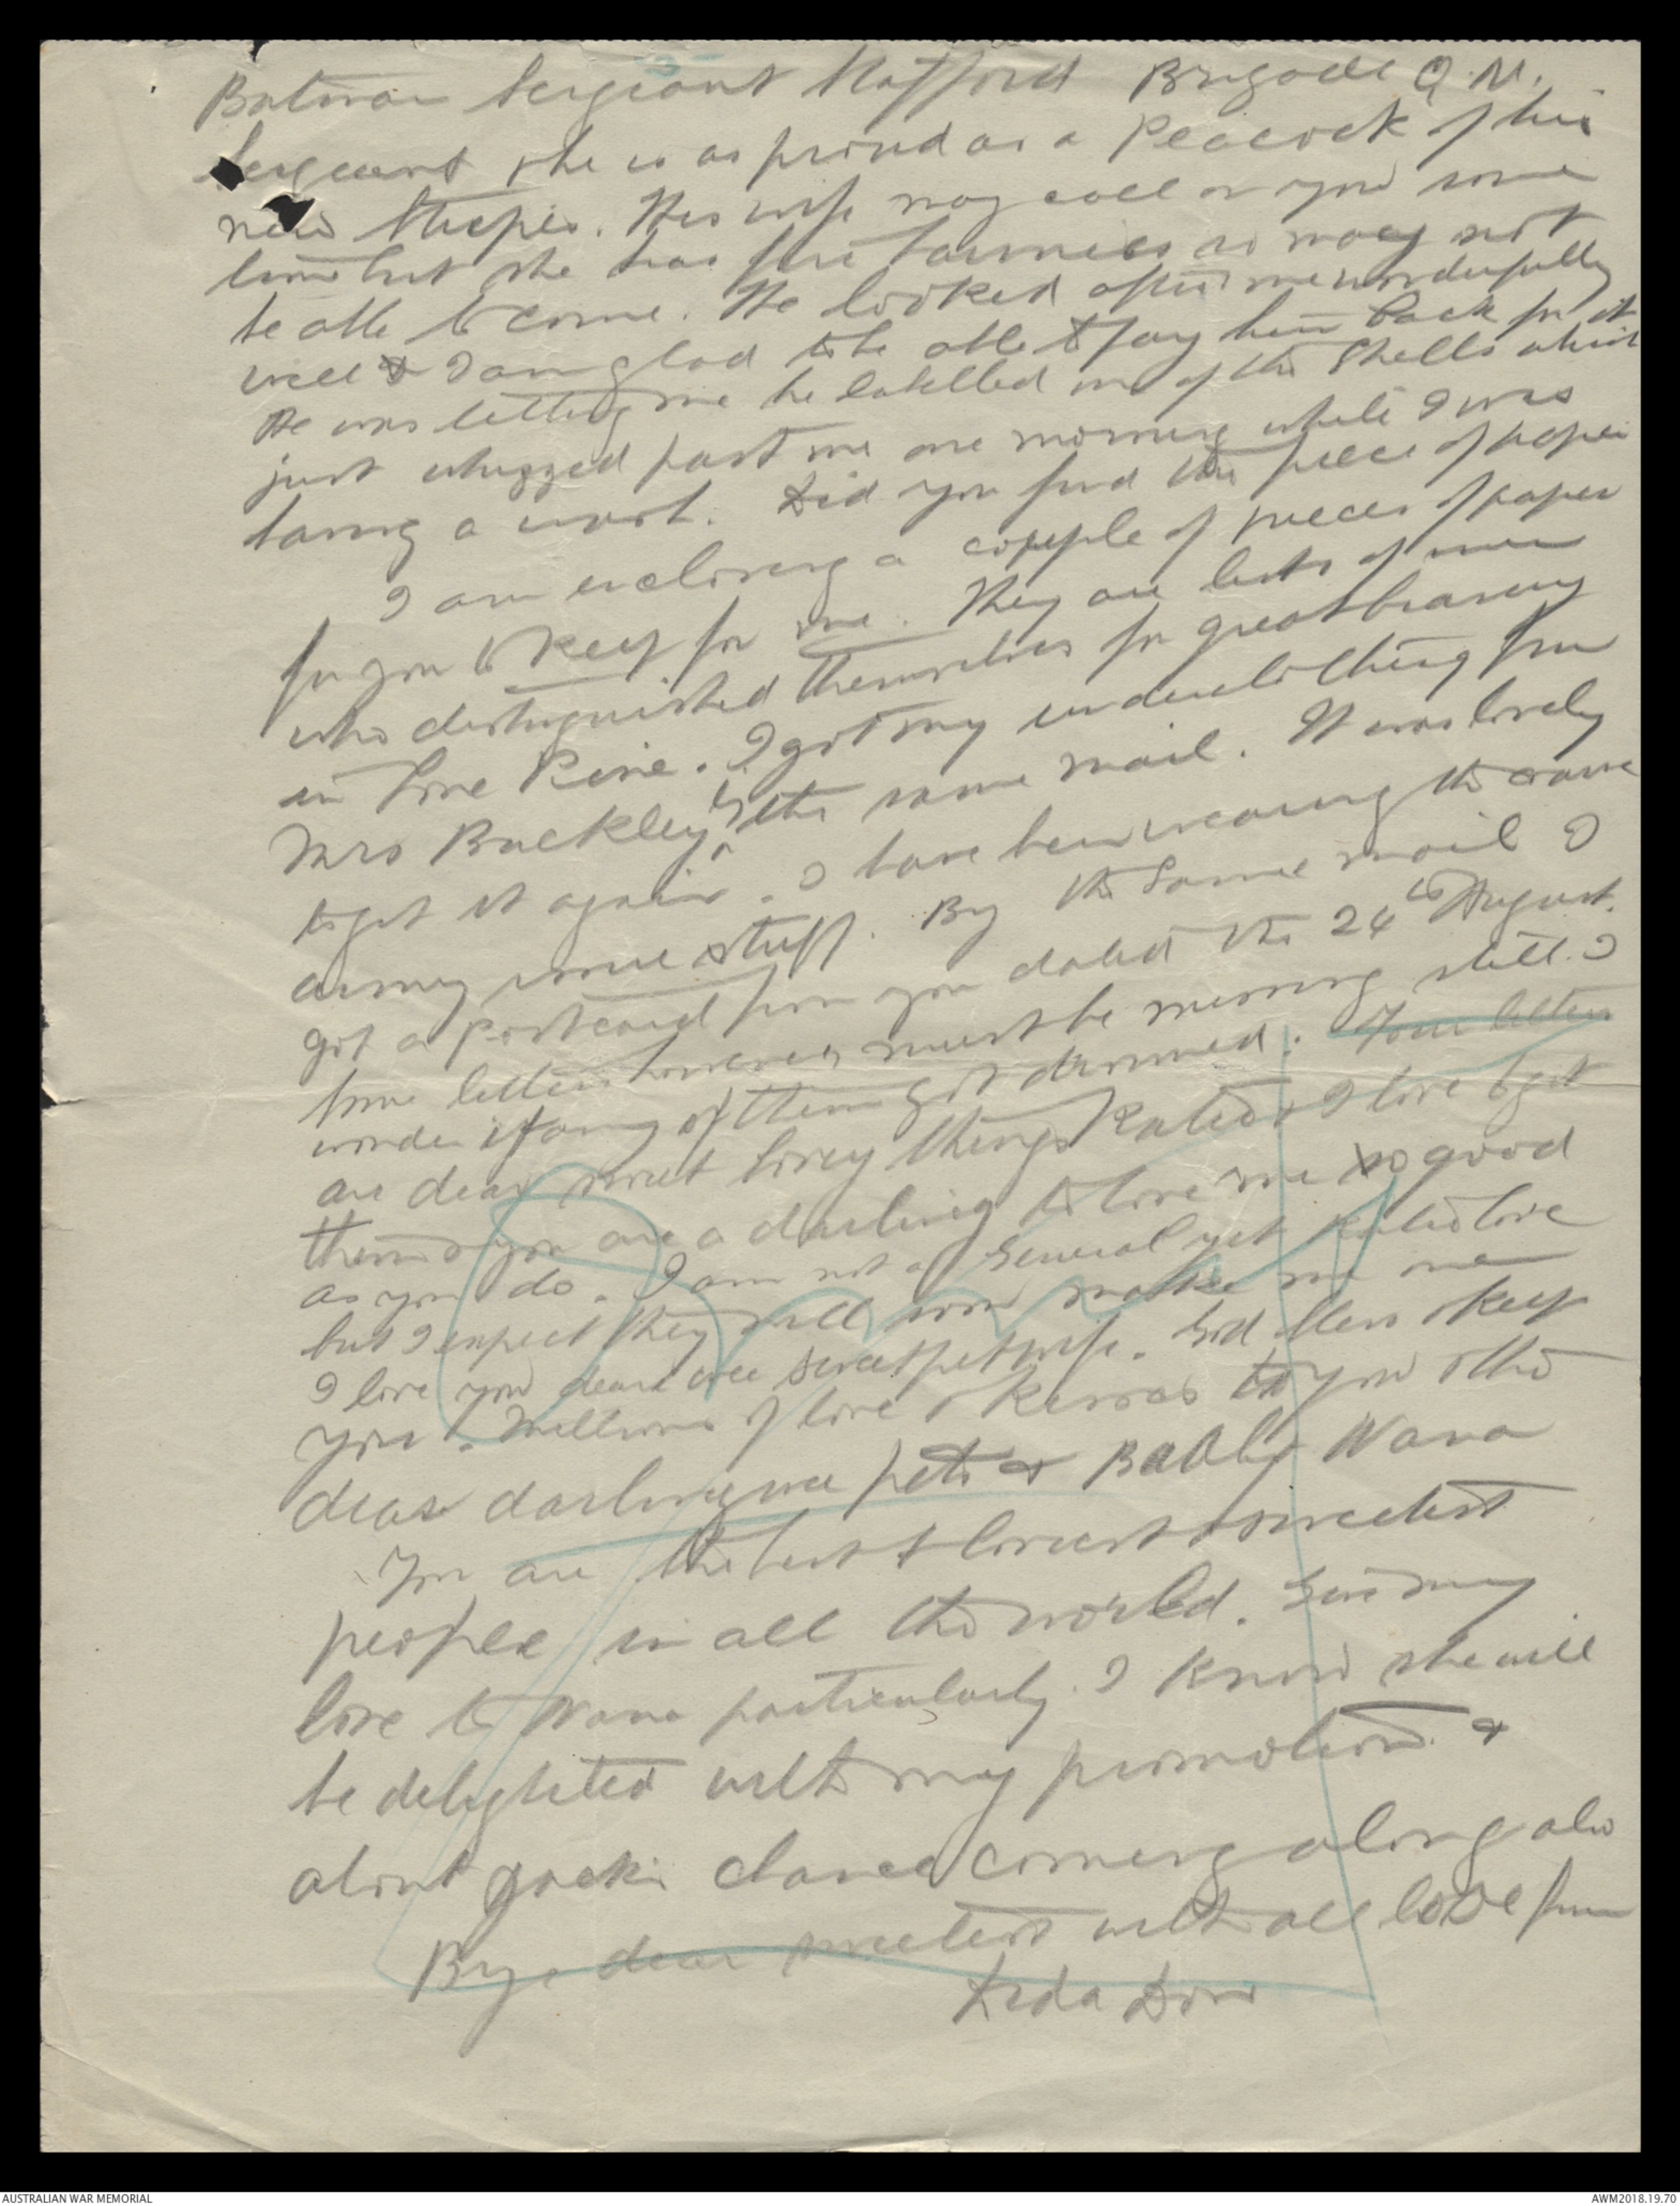 Batman Sergeant Stafford Brigade Q.M.
Sergeant & he is as proud as a Peacock of his
new Stripes. His wife may call on you some
time but she has five bairnies so may not
be able to come. He looked after me wonderfully
well & I am glad to be able to pay him back for it
He was telling me he labelled one of the Shells which
just whizzed past me one morning while I was
having a wash. Did you find the piece of paper
I am enclosing a couple of pieces of paper
for you to keep for me. They are lists of men
who distinguished themselves for great bravery
in Lone Pine. I got my underclothing from
Mrs Buckley by the same mail. It was lovely
to get it again. I have been wearing the coarse
army issue stuff. By the Same mail I
got a postcard from you dated the 24th August.
Some letters however must be missing still. I
wonder if any of them got drowned. Your letters
are dear sweet lovey things Katie & I love to get
them & you are a darling to love me so good
as you do. I am not a General yet Katie love
but I expect they will soon make me one
I love you dear wee sweet pet wife. God bless & keep
you. Millions of love & kisses to you & the
dear darling wee pets & Bably Nana
You are the best & loviest & sweetest
people in all the world. Give my
love to Nana particularly. I know she will
be delighted with my promotion &
about Jack's chance coming along also
Bye dear sweetest with all love from
Dida Don
AUSTRALIAN WAR MEMORIAL
AWM2018.19.70